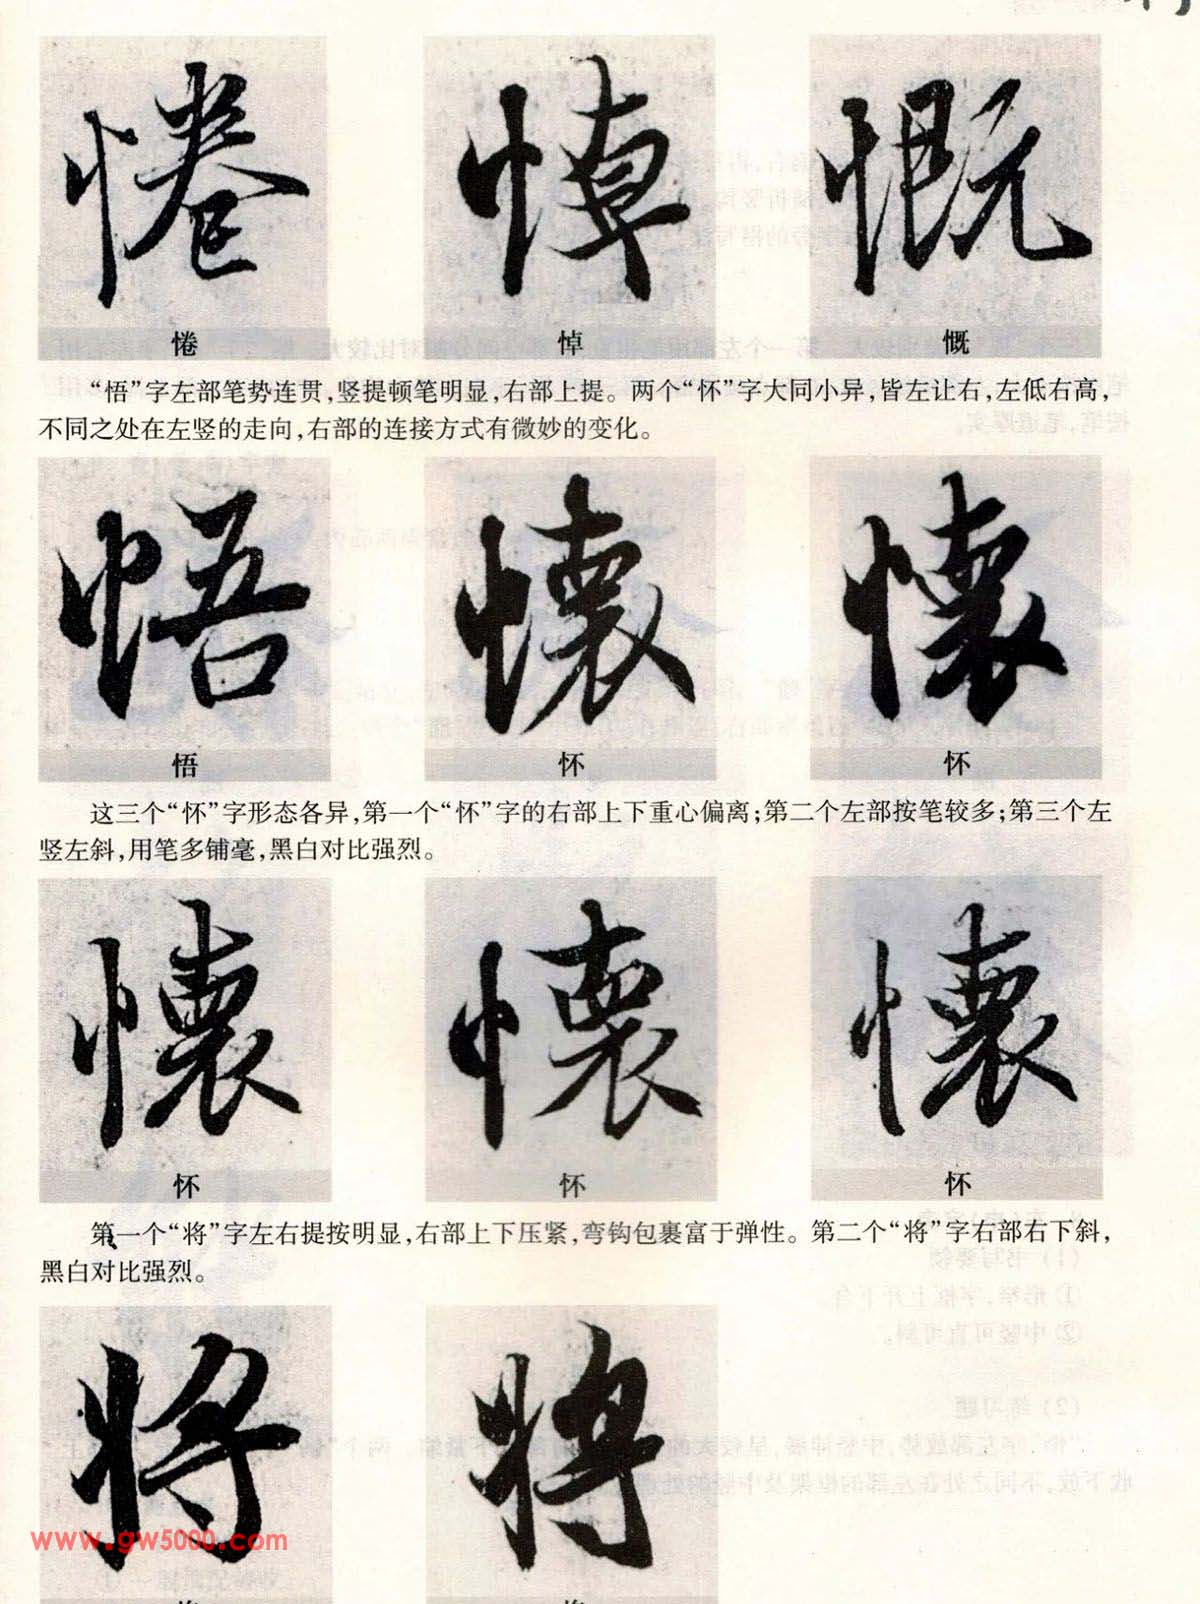 惓 悼 慨
惓 悼 慨
“悟”字左部笔势连贯,竖提顿笔明显,右部上提。两个“怀”字大同小异,皆左让右,左低右高,
不同之处在左竖的走向,右部的连接方式有微妙的变化。
悟 懷 懷
悟 怀 怀
这三个“怀”字形态各异,第一个“怀”字的右部上下重心偏离;第二个左部按笔较多;第三个左
竖左斜,用笔多铺毫,黑白对比强烈。
懷 懷 懷
怀 怀 怀
第一个“将”字左右提按明显,右部上下压紧,弯钩包裹富于弹性。第二个“将”字右部右下斜,
黑白对比强烈。
将 将
www.gw5000.com